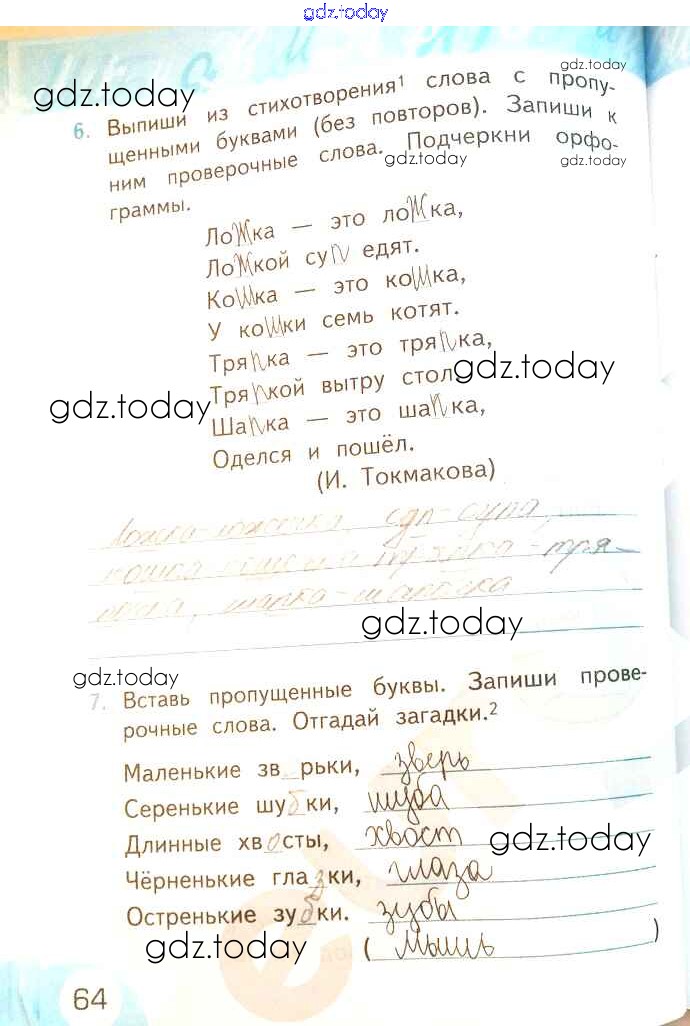 gdz.today
gdz.today
gdz.today
6. Выпиши из стихотворения¹ слова с пропу-
щенными буквами (без повторов). Запиши к
ним проверочные слова. Подчеркни орфо-
граммы.
gdz.today
gdz.today
Ложка — это ложка,
Ложкой суп едят.
Кошка — это кошка,
У кошки семь котят.
Тряпка — это тряпка,
Тряпкой вытру стол.
gdz.today
gdz.today
Шапка — это шапка,
Оделся и пошёл.
(И. Токмакова)
Ложка - ложечка, суп - супа,
кошка - тряпка - тря-
почка, шапка - шапочка
gdz.today
gdz.today
7. Вставь пропущенные буквы. Запиши прове-
рочные слова. Отгадай загадки.²
Маленькие зв рьки, зверь
Серенькие шубки, шуба
Длинные хвосты, хвост
gdz.today
Чёрненькие глазки, глаза
Остренькие зубки. зубы
gdz.today
( мышь )
64